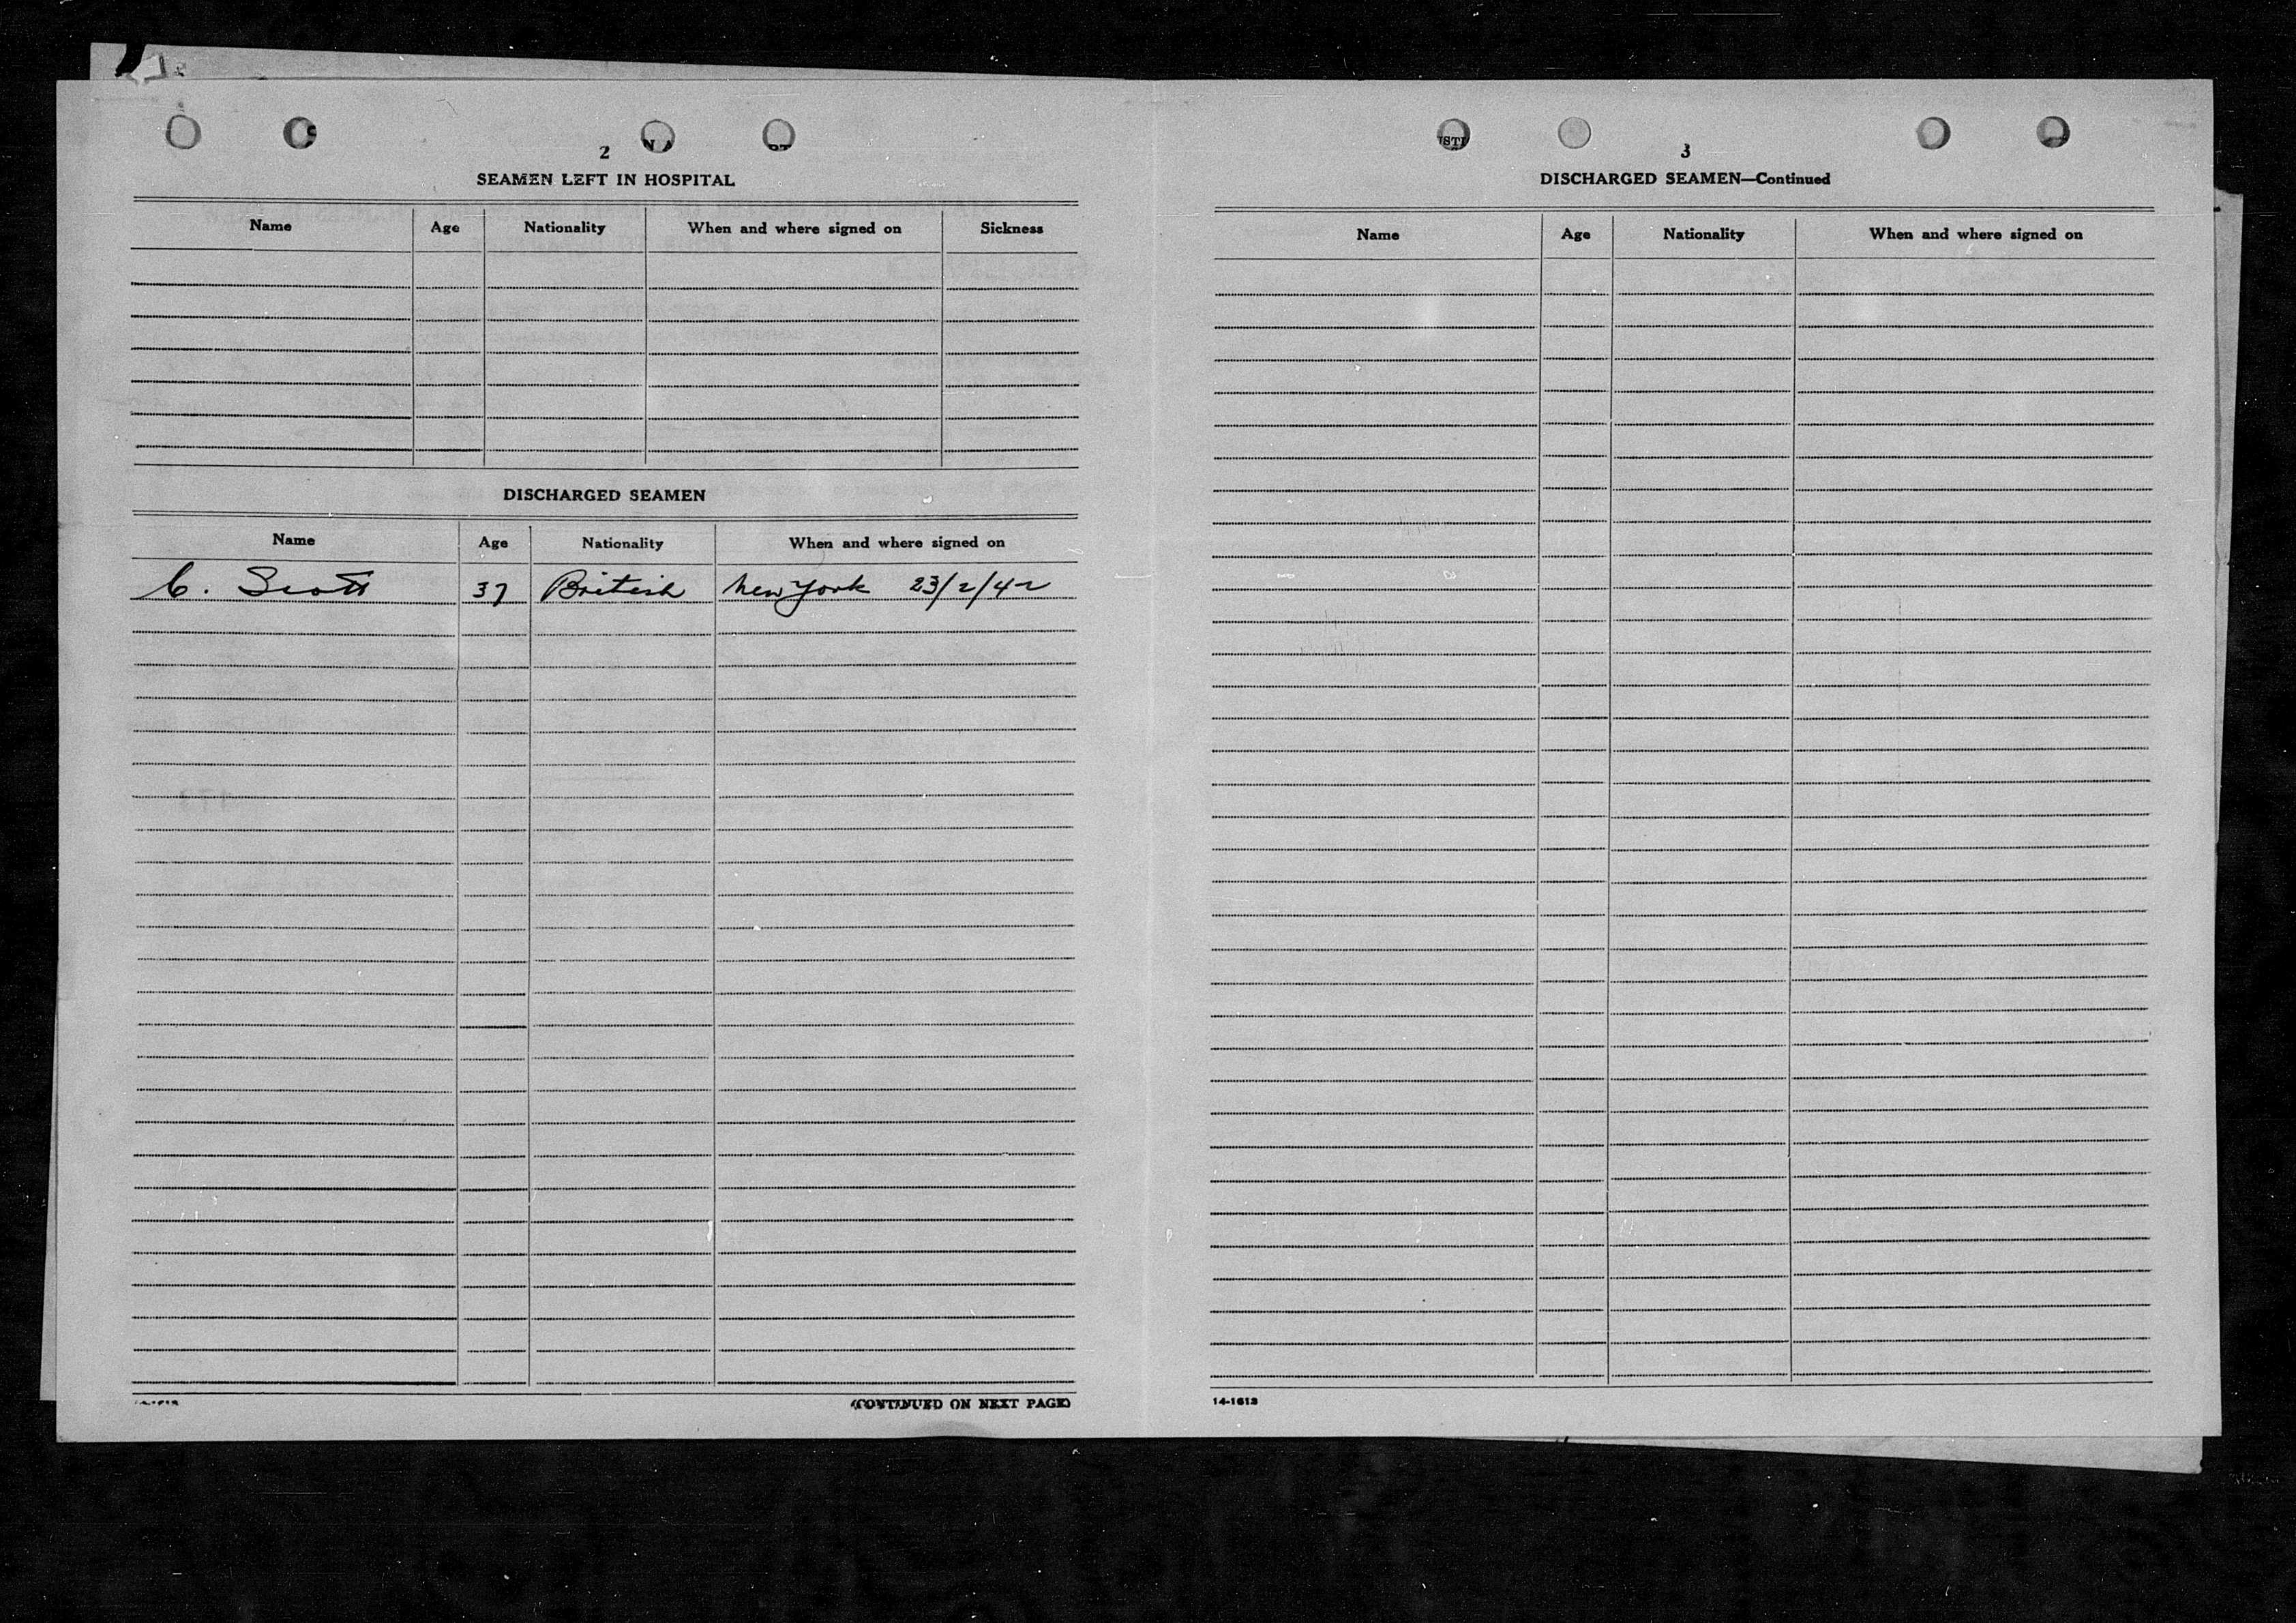 2
SEAMEN LEFT IN HOSPITAL
Name Age Nationality When and where signed on Sickness
DISCHARGED SEAMEN
Name Age Nationality When and where signed on
C. Scott 37 British New York 23/2/42
(CONTINUED ON NEXT PAGE)
3
DISCHARGED SEAMEN—Continued
Name Age Nationality When and where signed on
14-1613